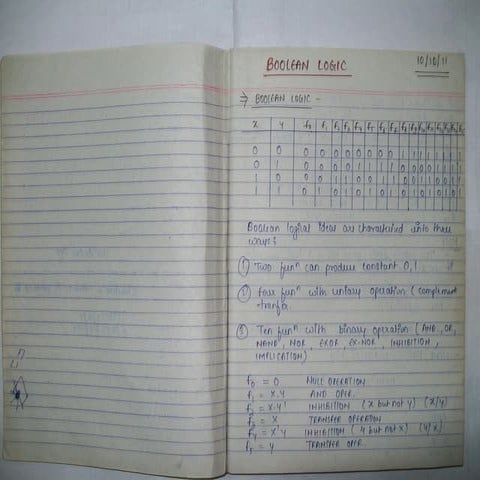 BOOLEAN LOGIC
10/10/11
⇒ BOOLEAN LOGIC -
X Y F0 F1 F2 F3 F4 F5 F6 F7 F8
0 0 0 0 0 0 0 0 0 0
0 1 0 0 0 0 1 1 1 1 0 0 0 0
1 0 0 0 1 1 0 0 1 1 0 0 1 1
1 1 0 1 0 1 0 1 0 1 0 1 0 1 0 1
Boolean logical Ideas are characterised into three
ways:
① Two funⁿ can produce constant 0,1.
② four funⁿ with unary operation (complement
tranfer
③ Ten funⁿ with binary operation (AND, OR,
NAND, NOR, EXOR, EX-NOR, INHIBITION,
IMPLICATION)
F0 = 0 NULL OPERATION
F1 = X.Y AND OPER.
F2 = X.Y' INHIBITION (X but not Y) (X/Y)
F3 = X TRANSFER OPERATION
F4 = X'Y INHIBITION (Y but not X) (Y/X)
F5 = Y TRANSFER OPER.